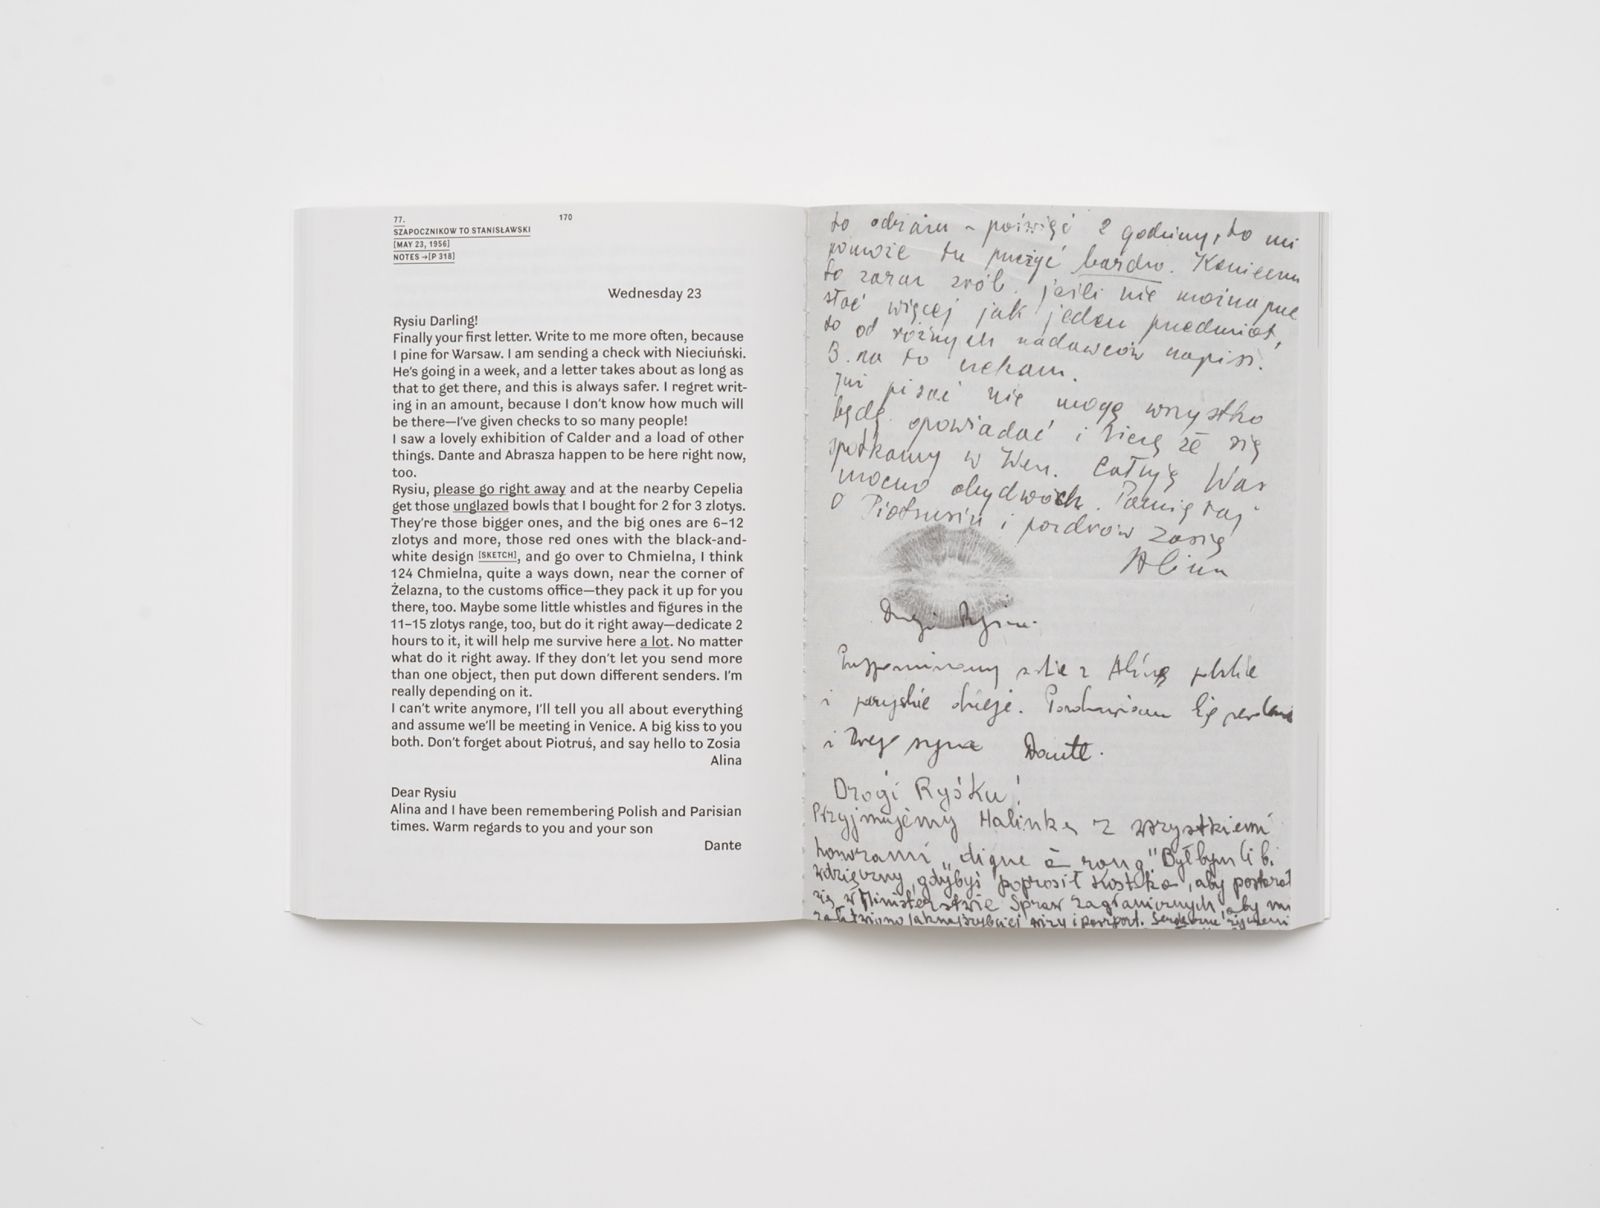 77.
170
SZAPOCZNIKOW TO STANISŁAWSKI
[MAY 23, 1956]
NOTES →[P 318]
Wednesday 23
Rysiu Darling!
Finally your first letter. Write to me more often, because
I pine for Warsaw. I am sending a check with Nieciuński.
He's going in a week, and a letter takes about as long as
that to get there, and this is always safer. I regret writ-
ing in an amount, because I don't know how much will
be there—I've given checks to so many people!
I saw a lovely exhibition of Calder and a load of other
things. Dante and Abrasza happen to be here right now,
too.
Rysiu, please go right away and at the nearby Cepelia
get those unglazed bowls that I bought for 2 for 3 zlotys.
They're those bigger ones, and the big ones are 6–12
zlotys and more, those red ones with the black-and-
white design [SKETCH], and go over to Chmielna, I think
124 Chmielna, quite a ways down, near the corner of
Żelazna, to the customs office—they pack it up for you
there, too. Maybe some little whistles and figures in the
11–15 zlotys range, too, but do it right away—dedicate 2
hours to it, it will help me survive here a lot. No matter
what do it right away. If they don't let you send more
than one object, then put down different senders. I'm
really depending on it.
I can't write anymore, I'll tell you all about everything
and assume we'll be meeting in Venice. A big kiss to you
both. Don't forget about Piotruś, and say hello to Zosia
Alina
Dear Rysiu
Alina and I have been remembering Polish and Parisian
times. Warm regards to you and your son
Dante
to odrazu - poświęć 2 godziny, to mi
pomoże tu przeżyć bardzo. Koniecznie
to zaraz zrób. jeśli nie można prze
słać więcej jak jeden przedmiot,
to od różnych nadawców napisz.
B. na to czekam.
Już pisać nie mogę wszystko
będę opowiadać i liczę że się
spotkamy w Wen. Całuję Was
mocno obydwóch. Pamiętaj
o Piotrusiu i pozdrów Zosię
Alina
Drogi Rysiu.
Przypominamy sobie z Aliną polskie
i paryskie dzieje. Pozdrawiam Cię
i Twego syna Dante.
Drogi Ryśku!
Przyjmujemy Halinkę z wszystkiemi
honorami „digne à rang" Byłbym Ci b.
wdzięczny gdybyś poprosił Kostka, aby postarał
się w Ministerstwie Spraw Zagranicznych aby mi
załatwiono jaknajszybciej wizy i paszport. Serdeczne